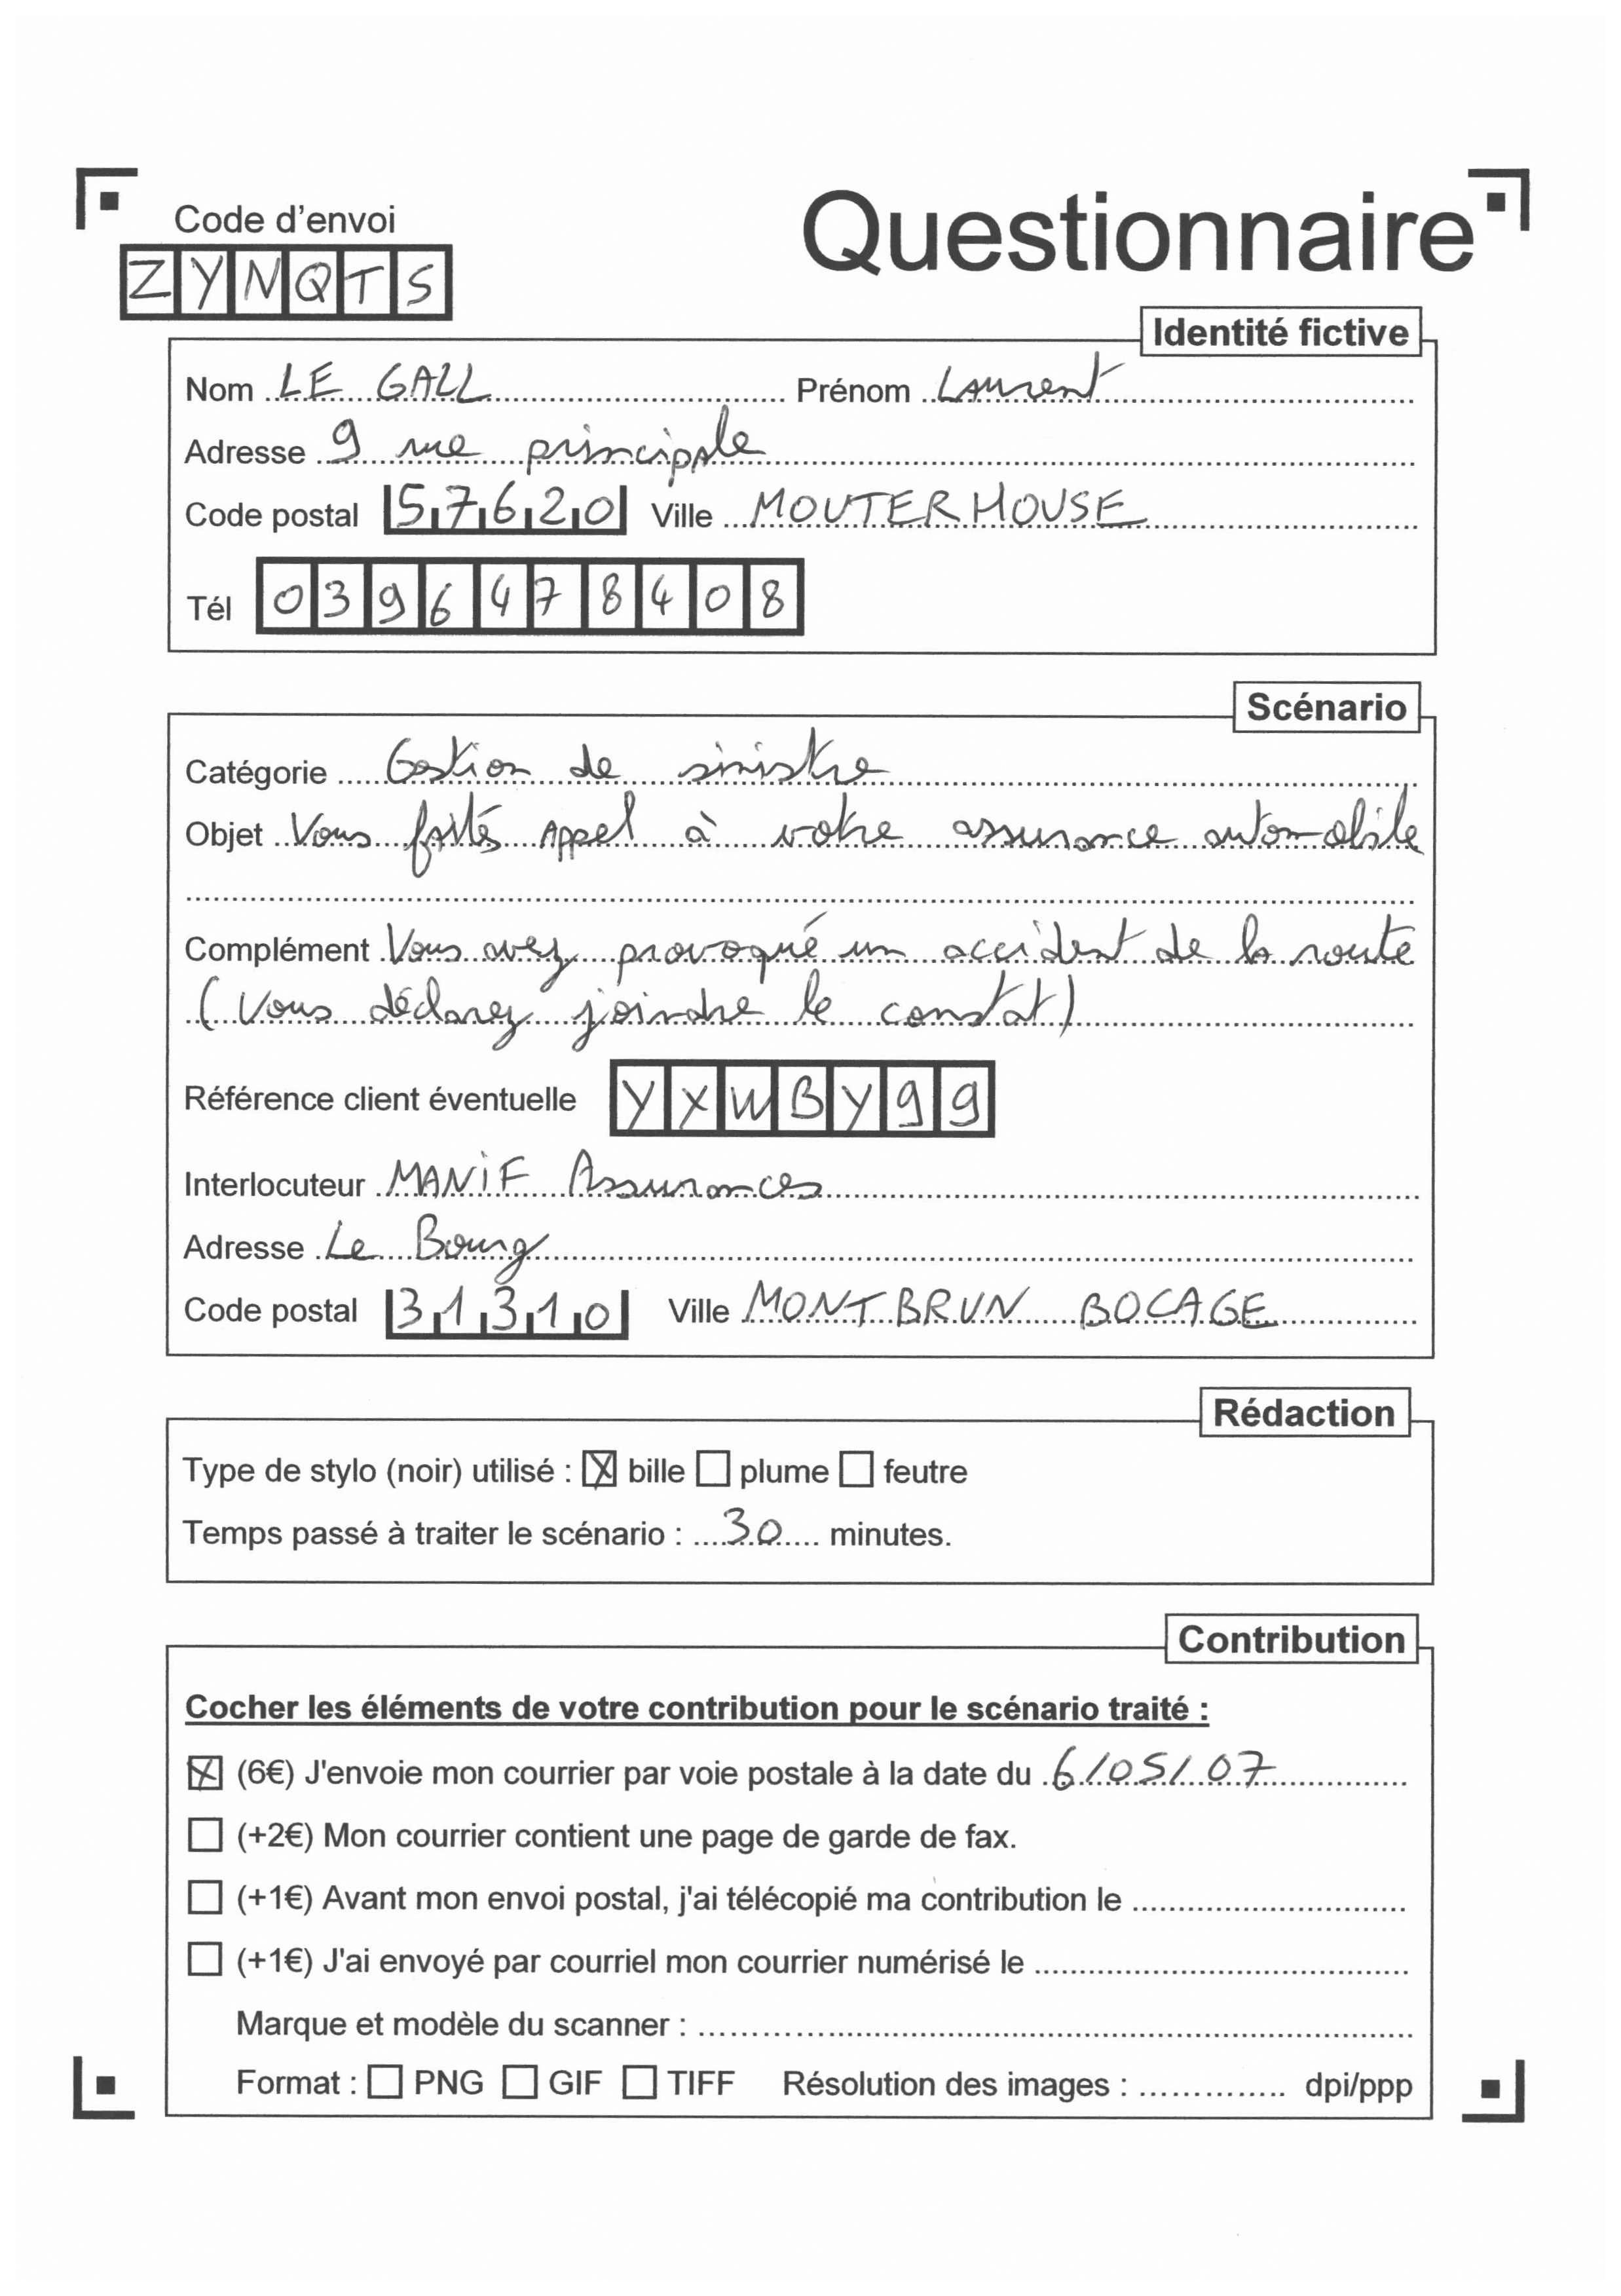 Code d'envoi
Questionnaire
ZYNQTS
Identité fictive
Nom LE GALL Prénom Laurent
Adresse 9 rue principale
Code postal 57620 Ville MOUTERHOUSE
Tél 0396478408
Scénario
Catégorie Gestion de sinistre
Objet Vous faîtes Appel à votre assurance automobile
Complément Vous avez provoqué un accident de la route
(Vous déclarez joindre le constat)
Référence client éventuelle YXWBY99
Interlocuteur MANIF Assurances
Adresse Le Bourg
Code postal 31310 Ville MONTBRUN BOCAGE
Rédaction
Type de stylo (noir) utilisé : ☒ bille ☐ plume ☐ feutre
Temps passé à traiter le scénario : 30 minutes.
Contribution
Cocher les éléments de votre contribution pour le scénario traité :
☒ (6€) J'envoie mon courrier par voie postale à la date du 6/05/07
☐ (+2€) Mon courrier contient une page de garde de fax.
☐ (+1€) Avant mon envoi postal, j'ai télécopié ma contribution le
☐ (+1€) J'ai envoyé par courriel mon courrier numérisé le
Marque et modèle du scanner :
Format : ☐ PNG ☐ GIF ☐ TIFF Résolution des images : dpi/ppp